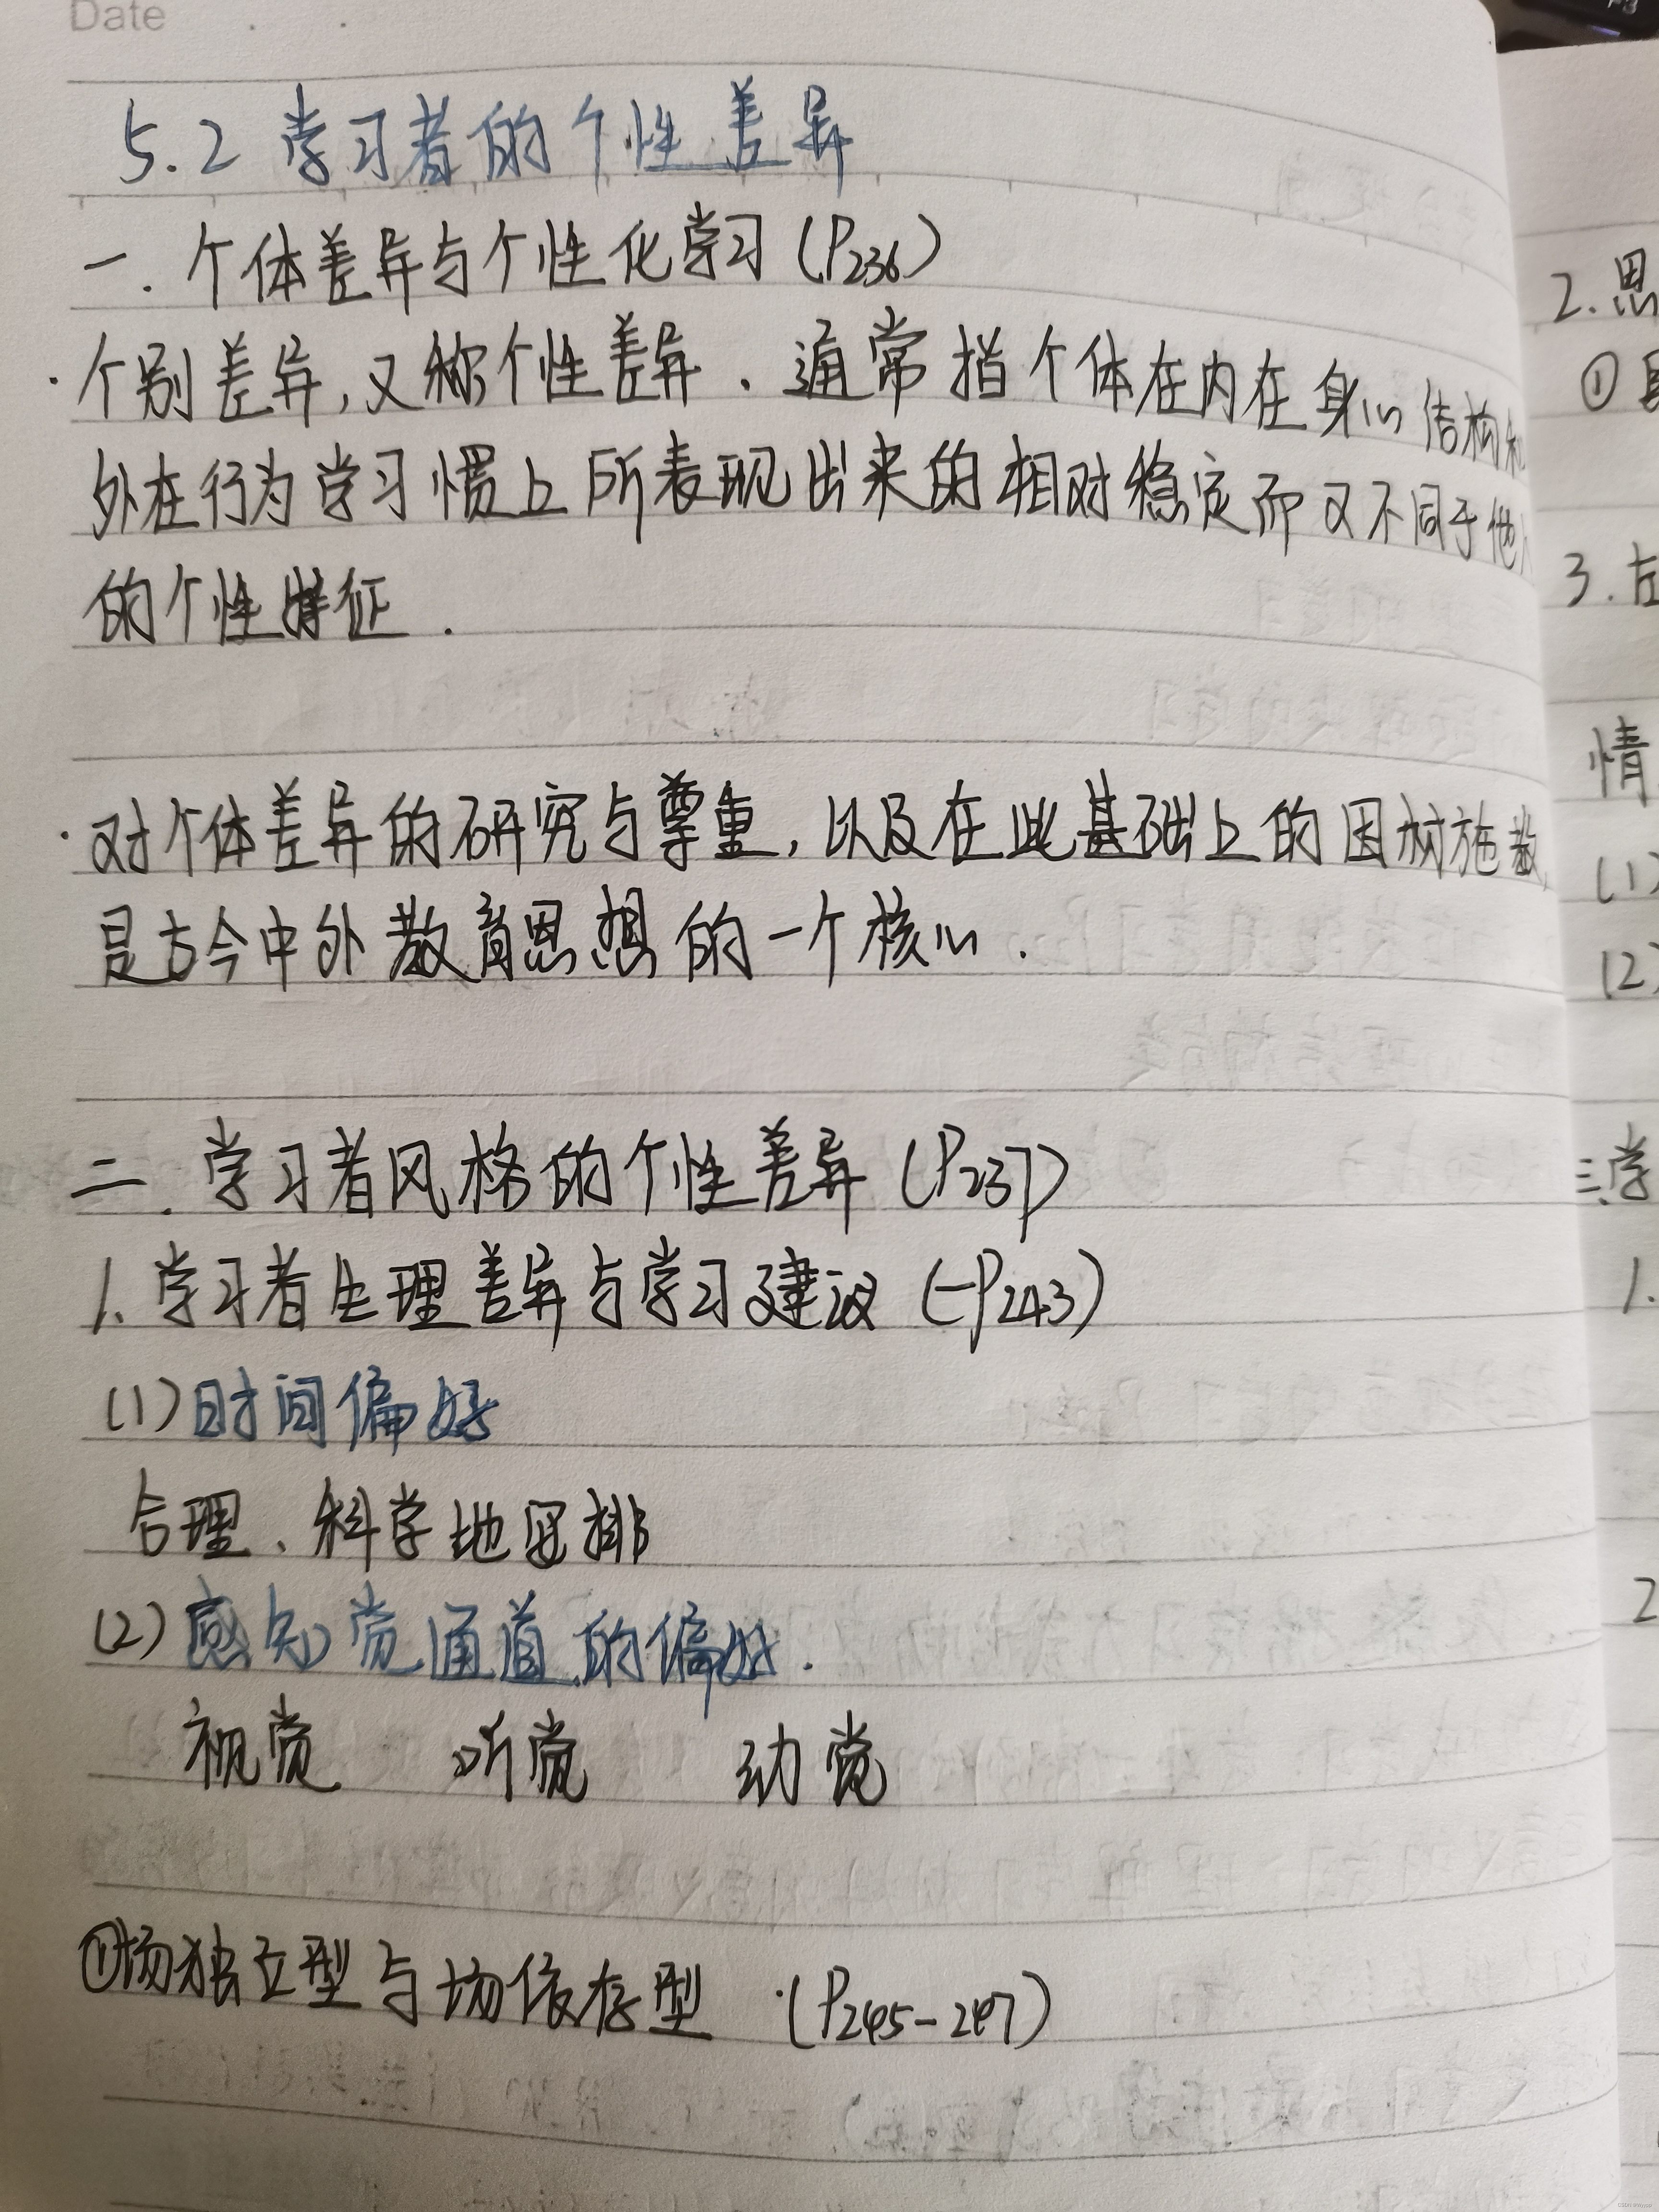 Date
5.2 学习者的个性差异
一. 个体差异与个性化学习 (P236)
· 个别差异,又称个性差异. 通常指个体在内在身心结构和
外在行为学习惯上所表现出来的相对稳定而又不同于他人
的个性特征.
· 对个体差异的研究与尊重, 以及在此基础上的因材施教,
是古今中外教育思想的一个核心.
二. 学习者风格的个性差异 (P237)
1. 学习者生理差异与学习建议 (-P243)
(1) 时间偏好
合理、科学地安排
(2) 感知觉通道的偏好.
视觉 听觉 动觉
①场独立型与场依存型 (P245-247)
2.思
①
3.左
情
(1)
(2)
三.学
1.
2
F3